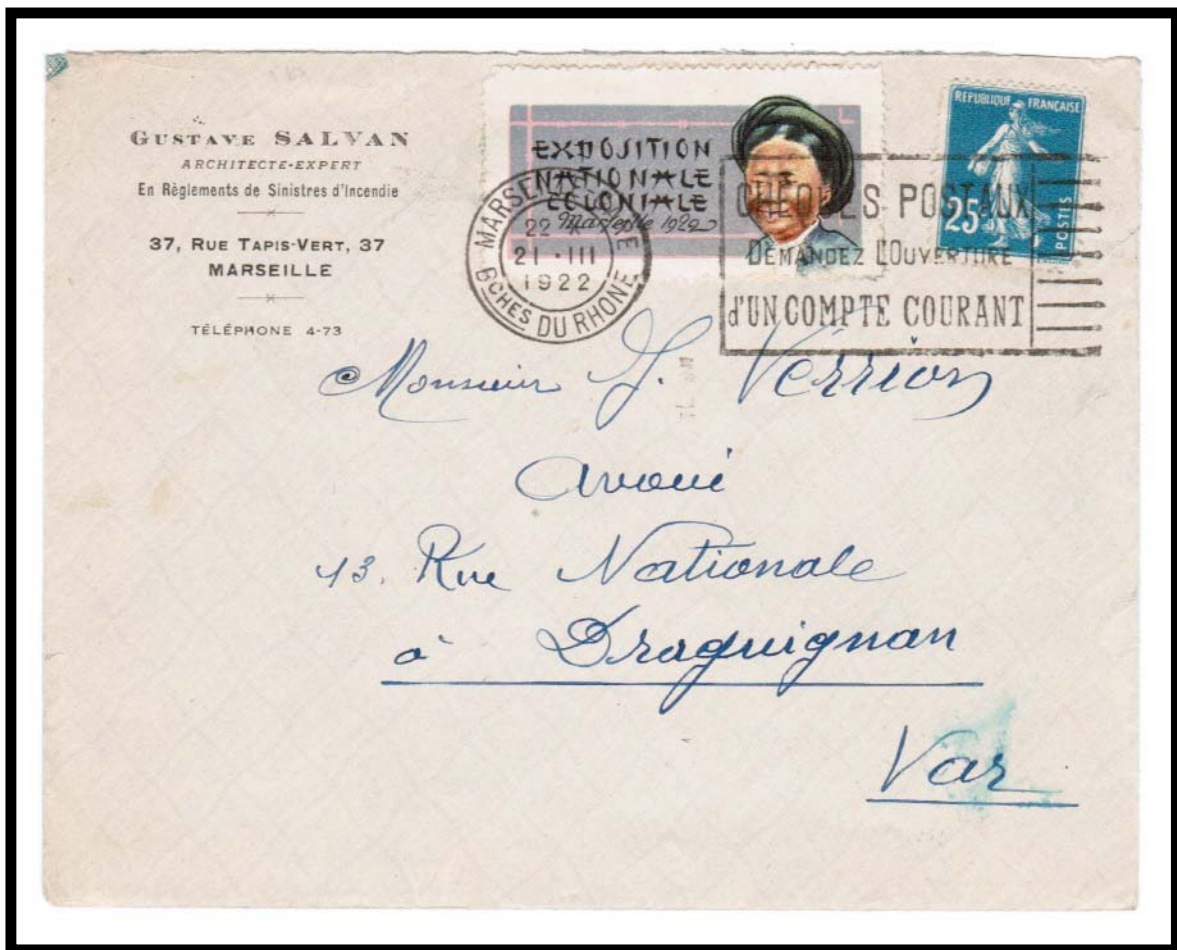 GUSTAVE SALVAN
ARCHITECTE-EXPERT
En Règlements de Sinistres d'Incendie
37, RUE TAPIS-VERT, 37
MARSEILLE
TÉLÉPHONE 4-73
EXPOSITION
NATIONALE
COLONIALE
Marseille 1922
MARSEILLE
22
21 • III
1922
BCHES DU RHONE
CHÈQUES POSTAUX
DEMANDEZ L'OUVERTURE
d'UN COMPTE COURANT
REPUBLIQUE FRANÇAISE
25c
POSTES
Monsieur J. Verrion
avoué
13. Rue Nationale
à Draguignan
Var